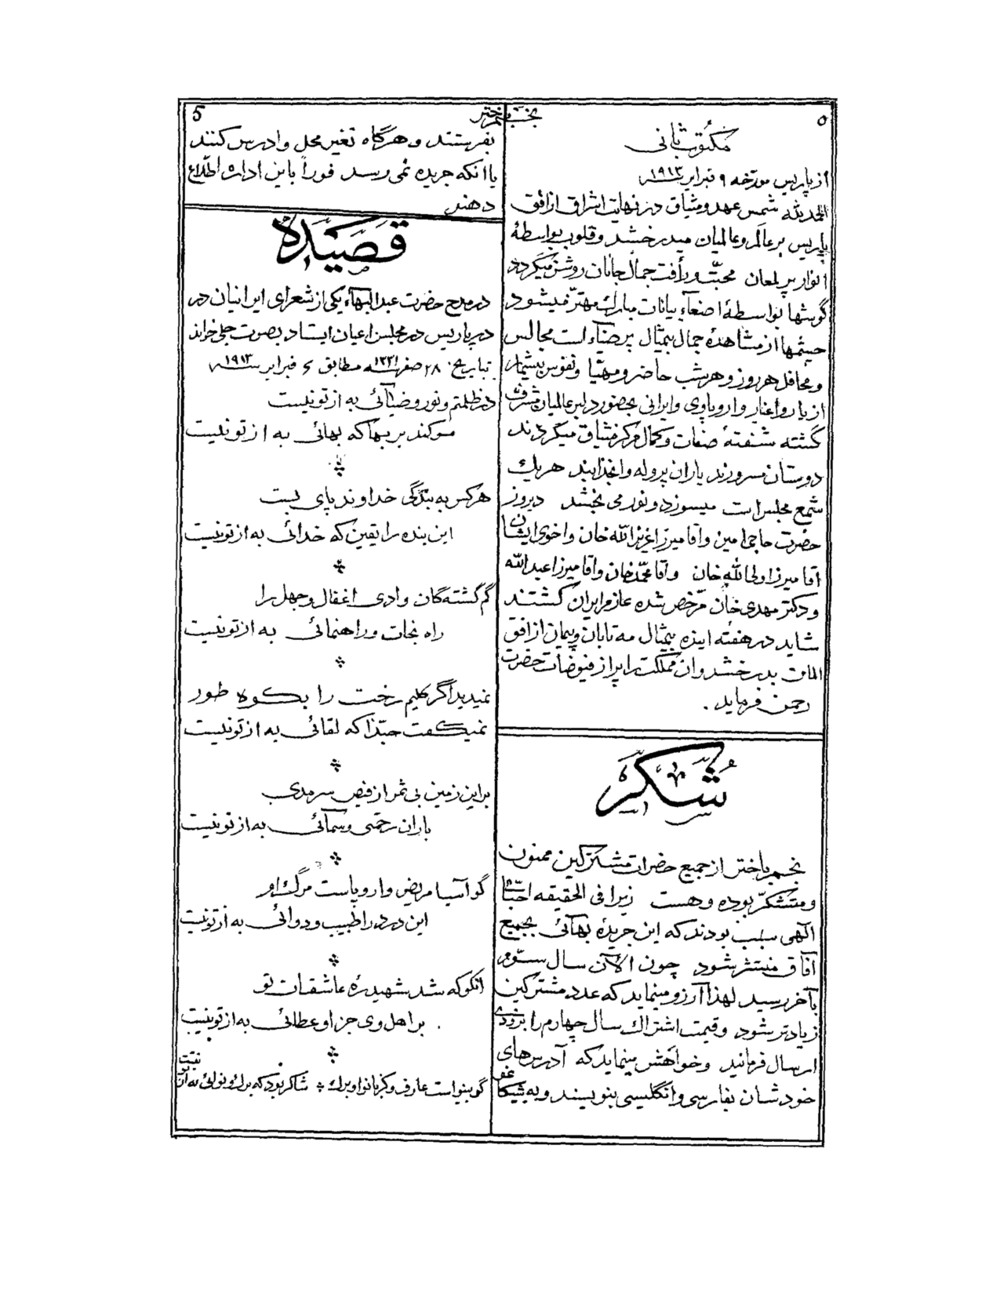 5
نجم باختر
۵
مکتوب ثانی
از پاریس مورّخه ۹ فبرایر ۱۹۱۳
الحمد لله شمس عهد و میثاق در نهایت اشراق از افق
پاریس بر عالم و عالمیان میدرخشد و قلوب بواسطهٔ
انوار پر لمعان محبّت و رأفت جمال جانان روشن میگردد
گوشها بواسطهٔ اصغآء بیانات مبارک مهتزّ میشود
چشمها از مشاهدهٔ جمال بیمثال پر ضیآء است مجالس
و محافل هر روز و هر شب حاضر و مهیّا و نفوس بیشمار
از یار و اغیار و اروپاوی و ایرانی بحضور دلبر عالمیان مشرف
گشته شفتهٔ صفات و کمال مرکز میثاق میگردند
دوستان مسرورند یاران پروله و انجذابند هر یک
شمع مجلس است میسوزد و نور می بخشد دیروز
حضرت حاجی امین و اقا میرزا عزیز الله خان و اخوی ایشان
آقا میرزا ولی الله خان و اقا محمّد خان و اقا میرزا عبد الله
و دکتر مهدی خان مرّخص شده عازم ایران گشتند
شاید در هفته اینده بیمثال مه تابان پیمان از افق
المان بدرخشد و ان مملکت را پر از فیوضات حضرت
رحمن فرماید .
شکر
نجم باختر از جمیع حضرات مشترکین ممنون
و متشکّر بوده و هست زیرا فی الحقیقه احبّای
الهی سبب بودند که این جریدهٔ بهائی بجمیع
آفاق منتشر شود چون الآن سال سوّم
بآخر رسید لهذا آرزو مینماید که عدد مشترکین
زیادتر شود و قیمت اشتراک سال چهارم را بزودی
ارسال فرمایند و خواهش مینماید که آدرس‌های
خودشان بفارسی و انگلیسی بنویسند و به شیکاغو
بفرستند و هرگاه تغیر محل و ادرس کنند
یا انکه جریده نمی رسد فوراً باین اداره اطّلاع
دهند
قصیده
در مدح حضرت عبدالبهآء یکی از شعرای ایرانیان در
در پاریس در مجلس اعیان ایستاد بصوت جلی خواند
بتاریخ ۲۸ صفر ۱۳۳۱ مطابق ۶ فبرایر ۱۹۱۳
در ظلمتم و نور و ضیائی به از تو نیست
سوکند بر بها که بهائی به از تو نیست
هر کس به بندگی خداوند پای بست
این بنده را یقین که خدائی به از تو نیست
گم گشته گان وادی اغفال و جهل را
راه نجات و راهنمائی به از تو نیست
نمیدید اگر کلیم رخت را بکوه طور
نمیگفت حبّذا که لقائی به از تو نیست
بر این زمین بی ثمر از فیض سرمدی
باران رحمتی و سمآئی به از تو نیست
گو آسیا مریض و اروپاست مرگ او
این درد را طبیب و دوائی به از تو نیست
انکو که شد شهید ره عاشقان تو
بر اهل وی جز او عطائی به از تو نیست
گو بینواست عارف و کز بانوا و برگ شاکر بود که برگ و نوائی به از تو نیست